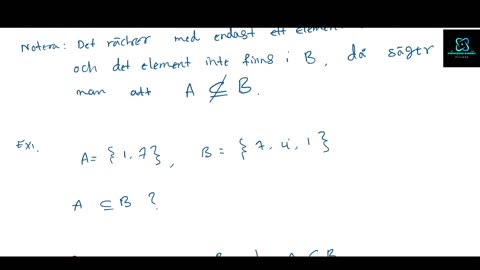 Notera: Det räcker med endast ett element
och det element inte finns i B, då säger
man att A ⊈ B.
Ex1.
A = {1, 7}, B = {7, 4, 1}
A ⊆ B ?